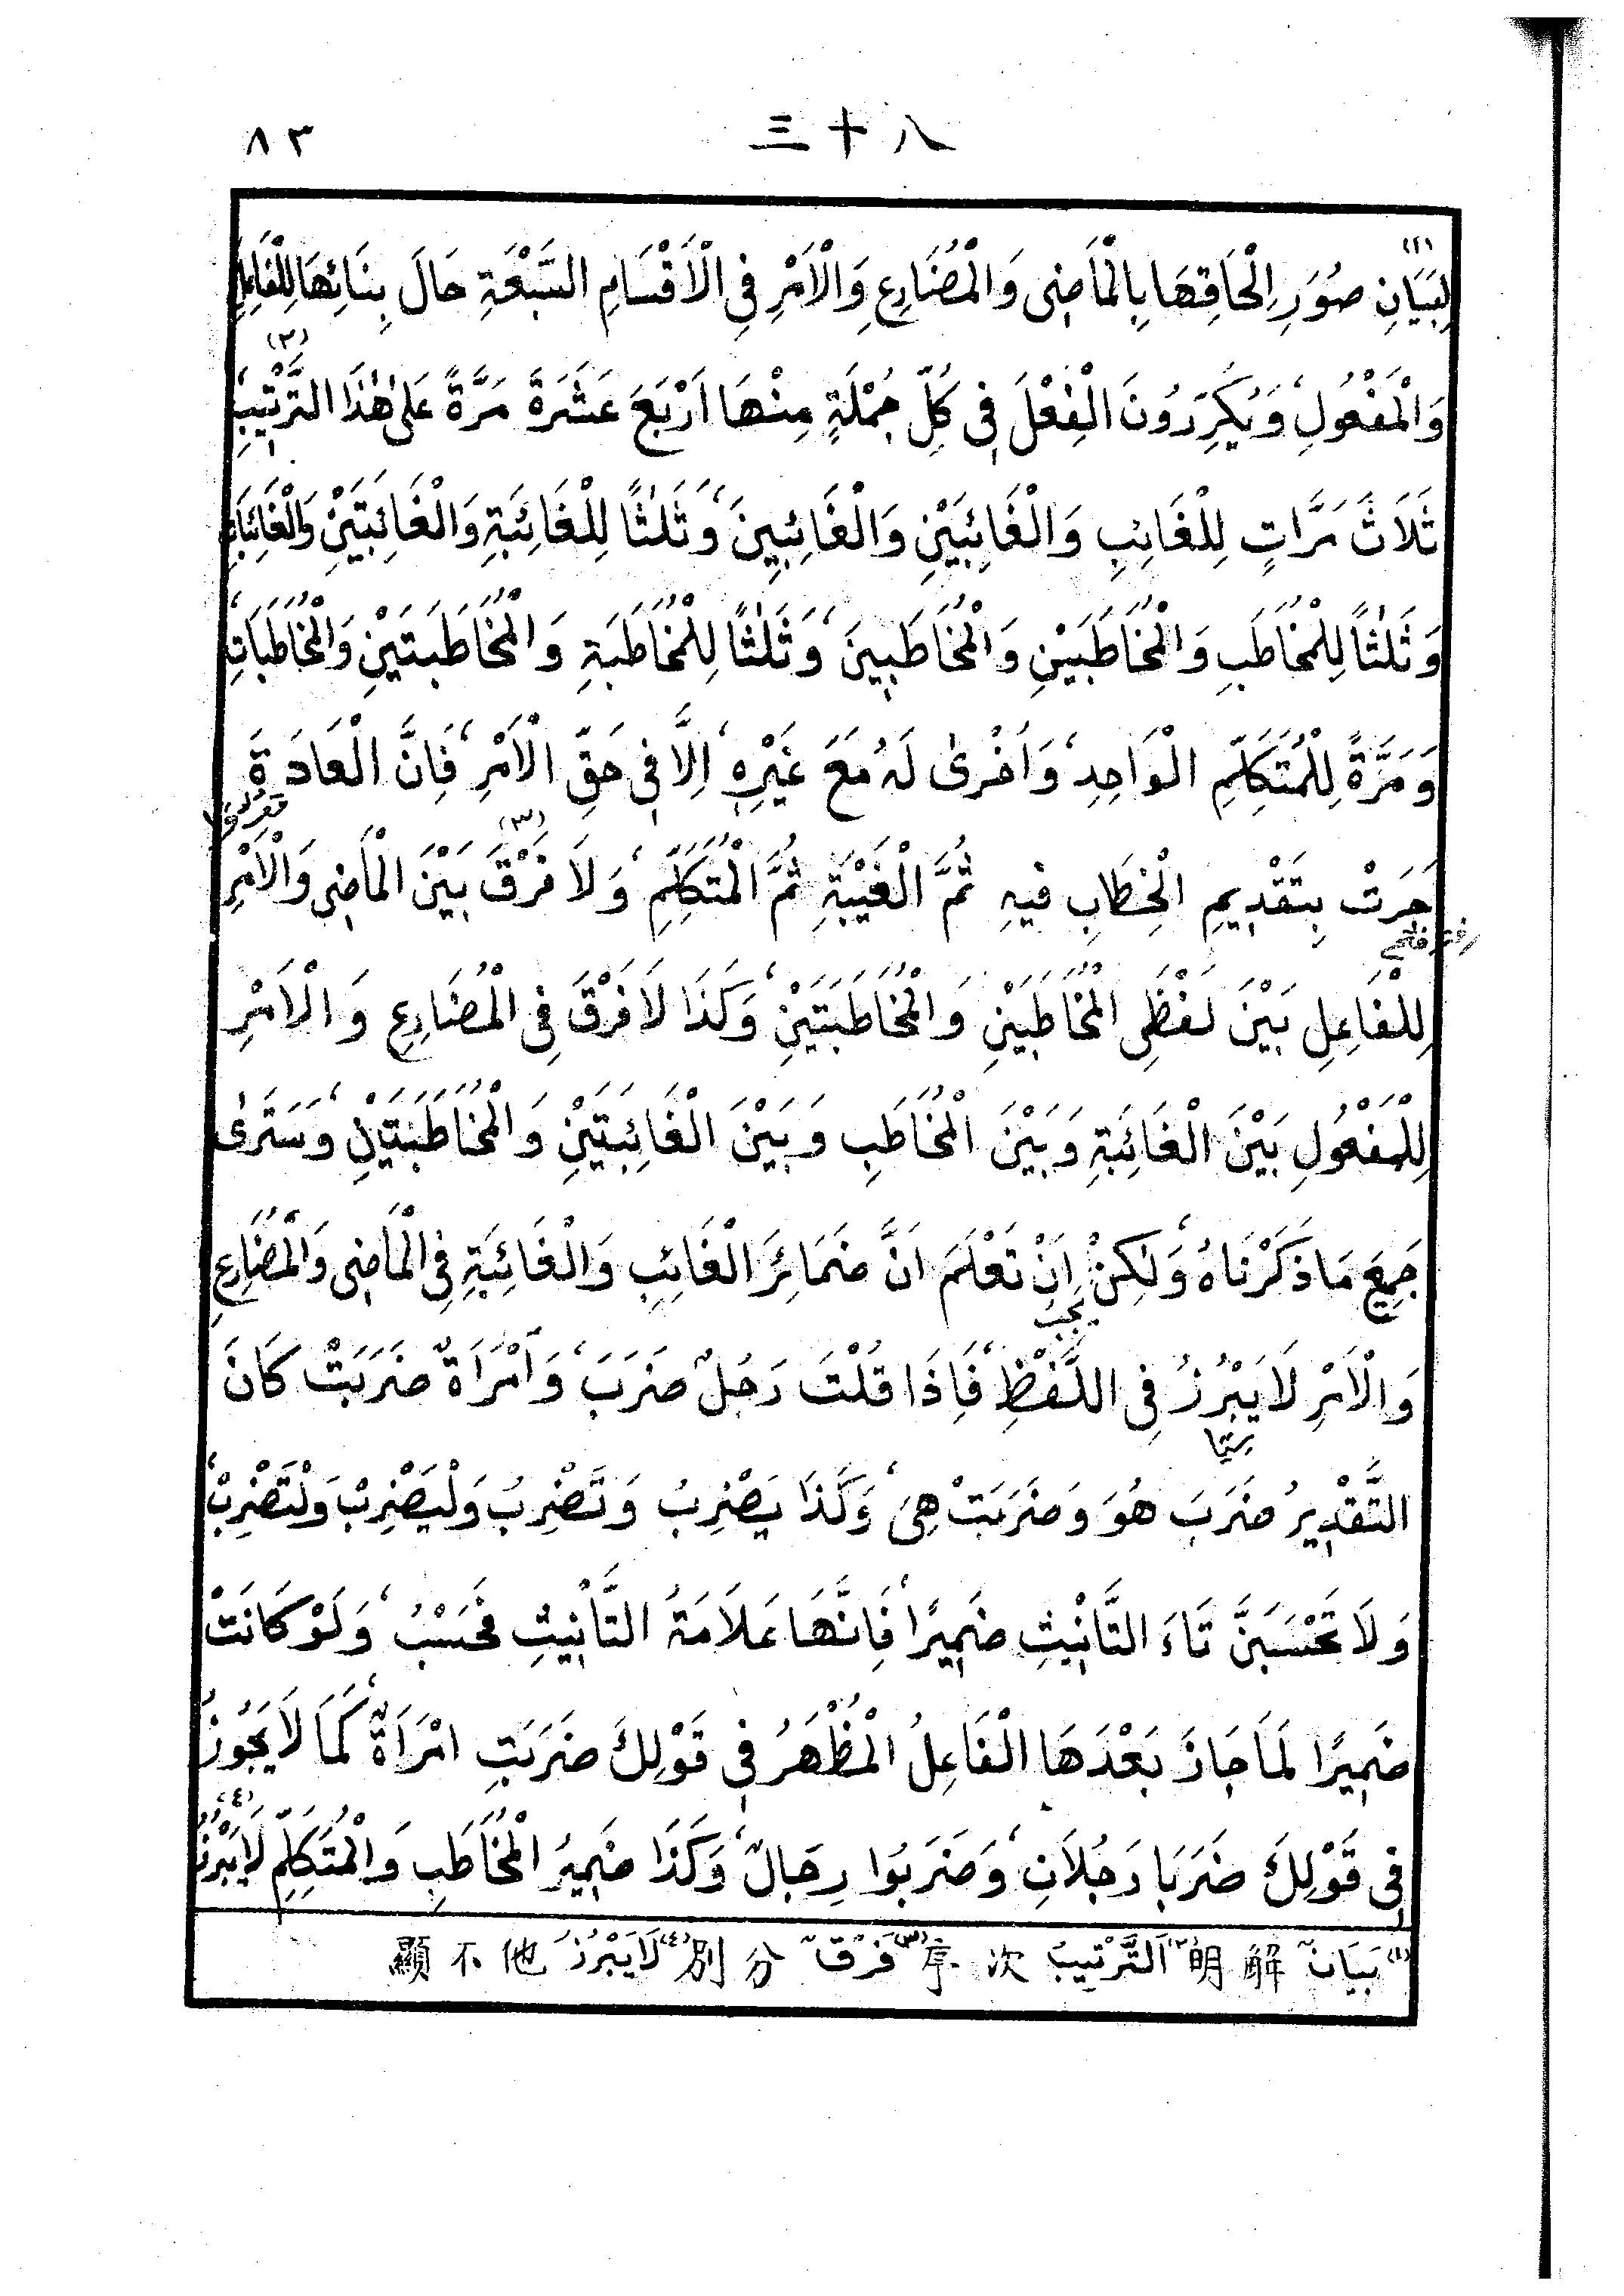 ٨٣ 三十八
لِبَيَانِ صُوَرِ اِلْحَاقِهَا بِالْمَاضِى وَالْمُضَارِعِ وَالْاَمْرِ فِى الْاَقْسَامِ السَّبْعَةِ حَالَ بِنَائِهَا لِلْفَاعِلِ
وَالْمَفْعُولِ، وَيُكَرِّرُونَ الْفِعْلَ فِى كُلِّ جُمْلَةٍ مِنْهَا اَرْبَعَ عَشْرَةَ مَرَّةً عَلٰى هٰذَا التَّرْتِيبِ،
ثَلَاثَ مَرَّاتٍ لِلْغَائِبِ وَالْغَائِبَيْنِ وَالْغَائِبِينَ، وَثَلٰثًا لِلْغَائِبَةِ وَالْغَائِبَتَيْنِ وَالْغَائِبَاتِ
وَثَلٰثًا لِلْمُخَاطَبِ وَالْمُخَاطَبَيْنِ وَالْمُخَاطَبِينَ، وَثَلٰثًا لِلْمُخَاطَبَةِ وَالْمُخَاطَبَتَيْنِ وَالْمُخَاطَبَاتِ،
وَمَرَّةً لِلْمُتَكَلِّمِ الْوَاحِدِ، وَاَخْرٰى لَهُ مَعَ غَيْرِهِ، اِلَّا فِى حَقِّ الْاَمْرِ، فَاِنَّ الْعَادَةَ
جَرَتْ بِتَقْدِيمِ الْخِطَابِ فِيهِ ثُمَّ الْغَيْبَةِ ثُمَّ الْمُتَكَلِّمِ، وَلَا فَرْقَ بَيْنَ الْمَاضِى وَالْاَمْرِ
لِلْفَاعِلِ بَيْنَ لَفْظَىِ الْمُخَاطَبَيْنِ وَالْمُخَاطَبَتَيْنِ، وَكَذَا لَا فَرْقَ فِى الْمُضَارِعِ وَالْاَمْرِ
لِلْمَفْعُولِ بَيْنَ الْغَائِبَةِ وَبَيْنَ الْمُخَاطَبِ وَبَيْنَ الْغَائِبَتَيْنِ وَالْمُخَاطَبَتَيْنِ، وَسَتَرٰى
جَمِيعَ مَا ذَكَرْنَاهُ، وَلٰكِنْ اِنْ تَعْلَمَ اَنَّ ضَمَائِرَ الْغَائِبِ وَالْغَائِبَةِ فِى الْمَاضِى وَالْمُضَارِعِ
يجب
وَالْاَمْرِ لَا يَبْرُزُ فِى اللَّفْظِ، فَاِذَا قُلْتَ رَجُلٌ ضَرَبَ، وَامْرَاَةٌ ضَرَبَتْ كَانَ
التَّقْدِيرُ ضَرَبَ هُوَ وَضَرَبَتْ هِىَ، وَكَذَا يَضْرِبُ وَتَضْرِبُ وَلْيَضْرِبْ وَلْتَضْرِبْ،
وَلَا تَحْسَبَنَّ تَاءَ التَّانِيثِ ضَمِيرًا، فَاِنَّهَا عَلَامَةُ التَّانِيثِ فَحَسْبُ، وَلَوْ كَانَتْ
ضَمِيرًا لَمَا جَازَ بَعْدَهَا الْفَاعِلُ الْمُظْهَرُ فِى قَوْلِكَ ضَرَبَتِ امْرَاَةٌ، كَمَا لَا يَجُوزُ
فِى قَوْلِكَ ضَرَبَا رَجُلَانِ، وَضَرَبُوا رِجَالٌ، وَكَذَا ضَمِيرُ الْمُخَاطَبِ وَالْمُتَكَلِّمِ لَا يَبْرُزُ
(١) بَيَانٌ 解明 (٢) اَلتَّرْتِيبُ 次序 (٣) فَرْقٌ 分别 (٤) لَا يَبْرُزُ 他不顯